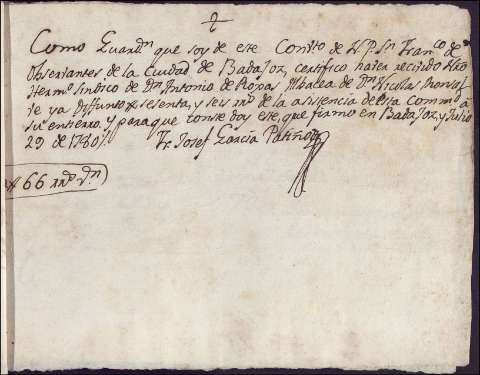 Como Guardn que soy de este Convto de N.P. Sn Franco de
Observantes de la Ciudad de Badajoz, certifico haver recivido Nro
Hermo Sindico de Dn Antonio de Roxas Albacea de Dn Nicolas
te ya Diffunto sesenta, y seis rrs de la asistencia de esta Commd a
su entierro. y para que conste doy este, que firmo en Badajoz, y Julio
29 de 1780
Fr Josef Garcia Patiño
66 rrs vn